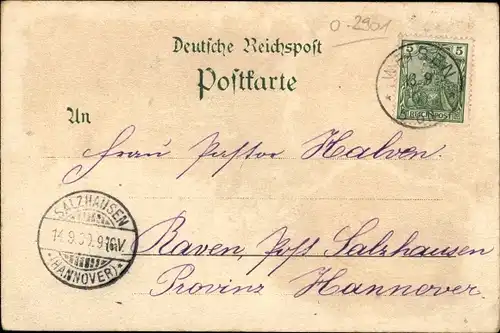 0-2901
Deutsche Reichspost
Postkarte
5 5
REICHSPOST
13.9
An
Frau Pastor Halven.
SALZHAUSEN
14.9.00.9-10V
(HANNOVER)
Raven, Post Salzhausen
Provinz Hannover